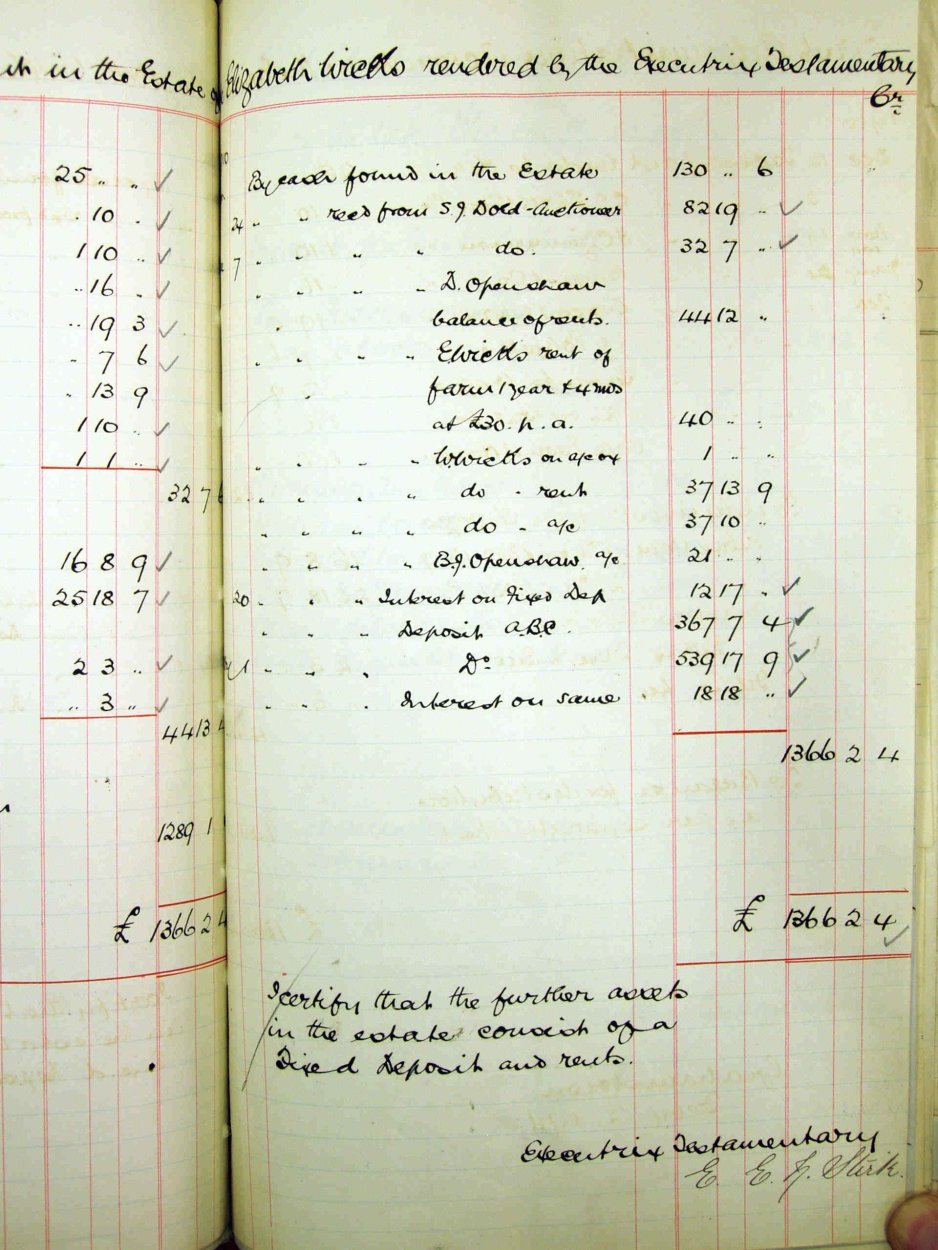 in the Estate of Elizabeth Wicks rendered by the Executrix Testamentary
Cr
25 " "
10 "
1 10 "
" 16 "
" 19 3
" 7 6
" 13 9
1 10 "
1 1 "
32 7 6
16 8 9
25 18 7
2 3 "
" 3 "
44 13 4
1289 1
£ 1366 2 4
By cash found in the Estate 130 " 6
24 " " recd from S.J. Dold - Auctioneer 82 19 "
7 " " " " do. 32 7 "
" " " " D. Openshaw
" balance of rents. 44 12 "
" " " " E Wicks rent of
" farm 1 year & 4 mos
at £30. p. a. 40 " "
" " " " W Wicks on a/c of 1 " "
" " " " do - rent 37 13 9
" " " " do - a/c 37 10 "
" " " " B.J. Openshaw a/c 21 " "
20 " " " Interest on Fixed Dep 12 17 "
" " " Deposit A.B.C. 367 7 4
" " " Do 539 17 9
" " " Interest on same 18 18 "
1366 2 4
£ 1366 2 4
I certify that the further assets
in the estate consist of a
Fixed Deposit and rents.
Executrix Testamentary
E. E. Stirk.